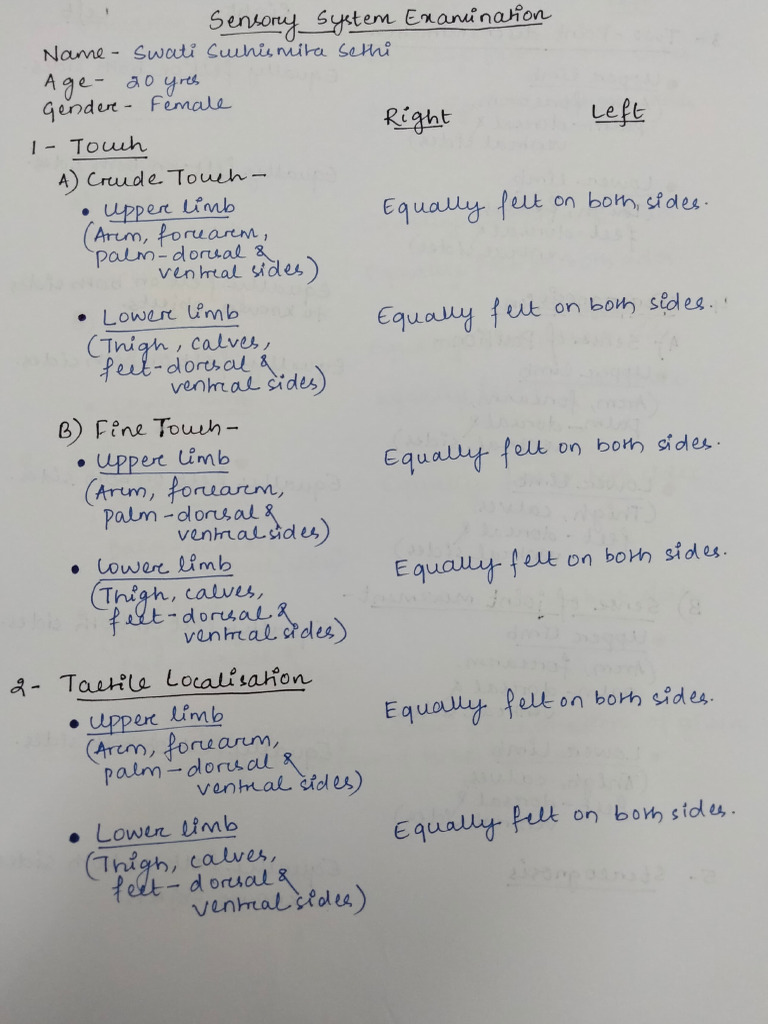 Sensory System Examination
Name - Swati Suchismita Sethi
Age - 20 yrs
Gender - Female
Right Left
1 - Touch
A) Crude Touch -
• Upper limb Equally felt on both sides.
(Arm, forearm,
palm - dorsal &
ventral sides)
• Lower limb Equally felt on both sides.
(Thigh, calves,
feet - dorsal &
ventral sides)
B) Fine Touch -
• Upper limb Equally felt on both sides.
(Arm, forearm,
palm - dorsal &
ventral sides)
• Lower limb Equally felt on both sides.
(Thigh, calves,
feet - dorsal &
ventral sides)
2 - Tactile Localisation
• Upper limb Equally felt on both sides.
(Arm, forearm,
palm - dorsal &
ventral sides)
• Lower limb Equally felt on both sides.
(Thigh, calves,
feet - dorsal &
ventral sides)